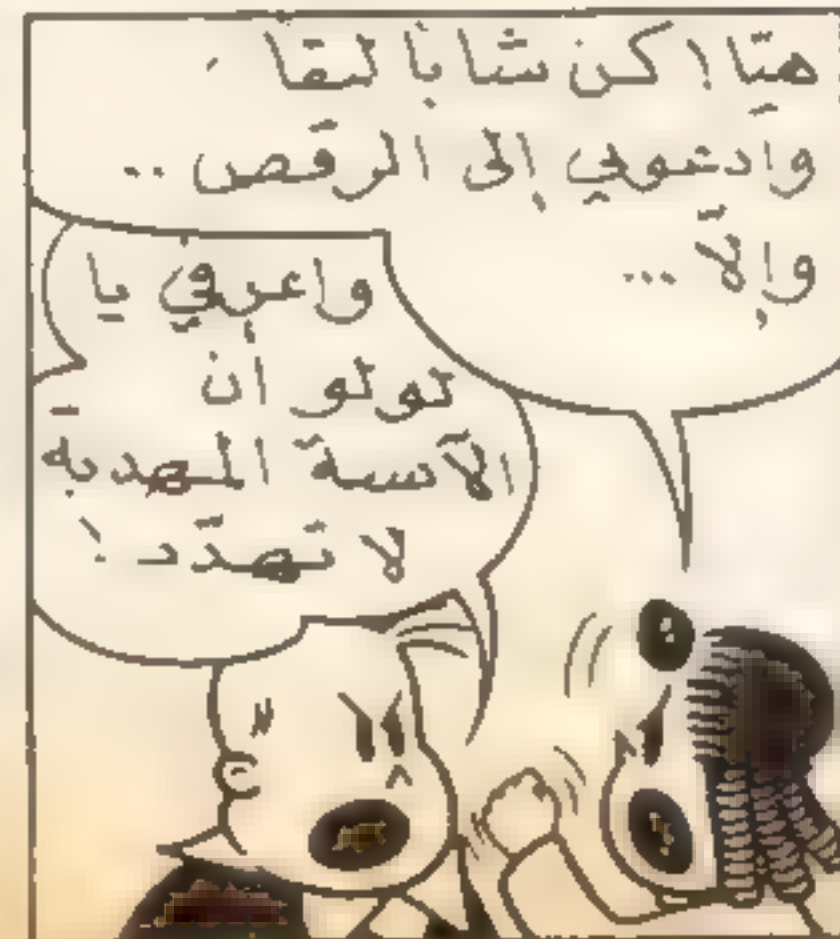 هيّا! كن شابا لبقا
وادعوني إلى الرقص ..
وإلاّ ...
واعرفي يا
لولو أن
الآنسة المهذبة
لا تهدّد!